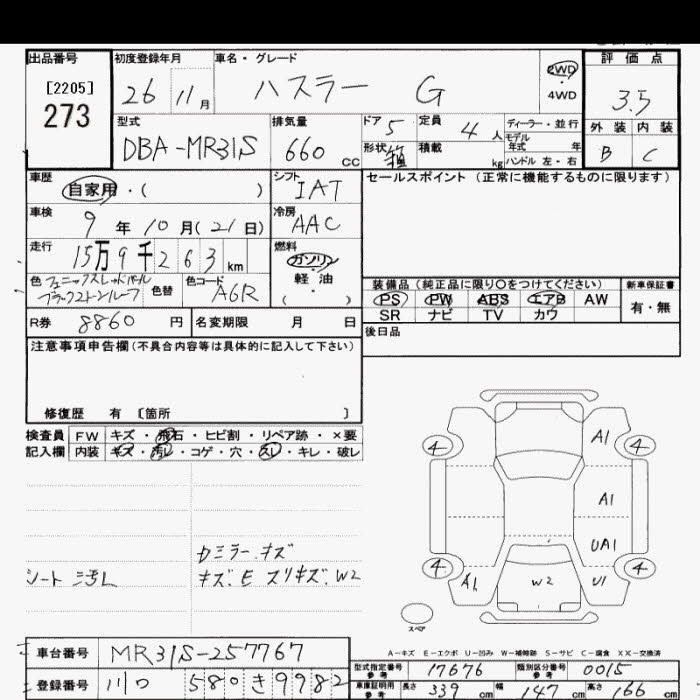 出品番号 初度登録年月 車名・グレード 評価点
[2205]
273
26 11月 ハスラー G 2WD ・ 4WD 3.5
型式 排気量 ドア 定員 ディーラー・並行 外装 内装
DBA-MR31S 660 cc 5 4人 モデル年式 年 B C
形状 箱 積載 kg ハンドル 左・右
車歴 シフト セールスポイント (正常に機能するものに限ります)
自家用・( ) IAT
車検 冷房
9年10月(21日) AAC
走行 燃料
15万9千263km ガソリン・軽油
( )
色 フェニックスレッドパール ブラック2トーンルーフ 色替 色コード A6R
装備品 (純正品に限り○をつけてください) 新車保証書
PS PW ABS エアB AW 有・無
SR ナビ TV カワ
R券 8860円 名変期限 月 日 後日品
注意事項申告欄(不具合内容等は具体的に記入して下さい)
修復歴 有 [箇所 ]
検査員 FW キズ・飛石・ヒビ割・リペア跡・×要
記入欄 内装 キズ・汚れ・コゲ・穴・スレ・キレ・破レ
シート 汚レ
カミラー キズ
キズ.E スリキズ.W2
4 A1 4
A1
UA1
4 A1 W2 U1 4
スペア
A-キズ E-エクボ U-凹み W-補修跡 S-サビ C-腐食 XX-交換済
車台番号 MR31S-257767
登録番号 川口 580 き 9982
型式指定番号 参考 17676 類別区分番号 参考 0015
車庫証明用 参考 長さ 339cm 幅 147cm 高さ 166cm